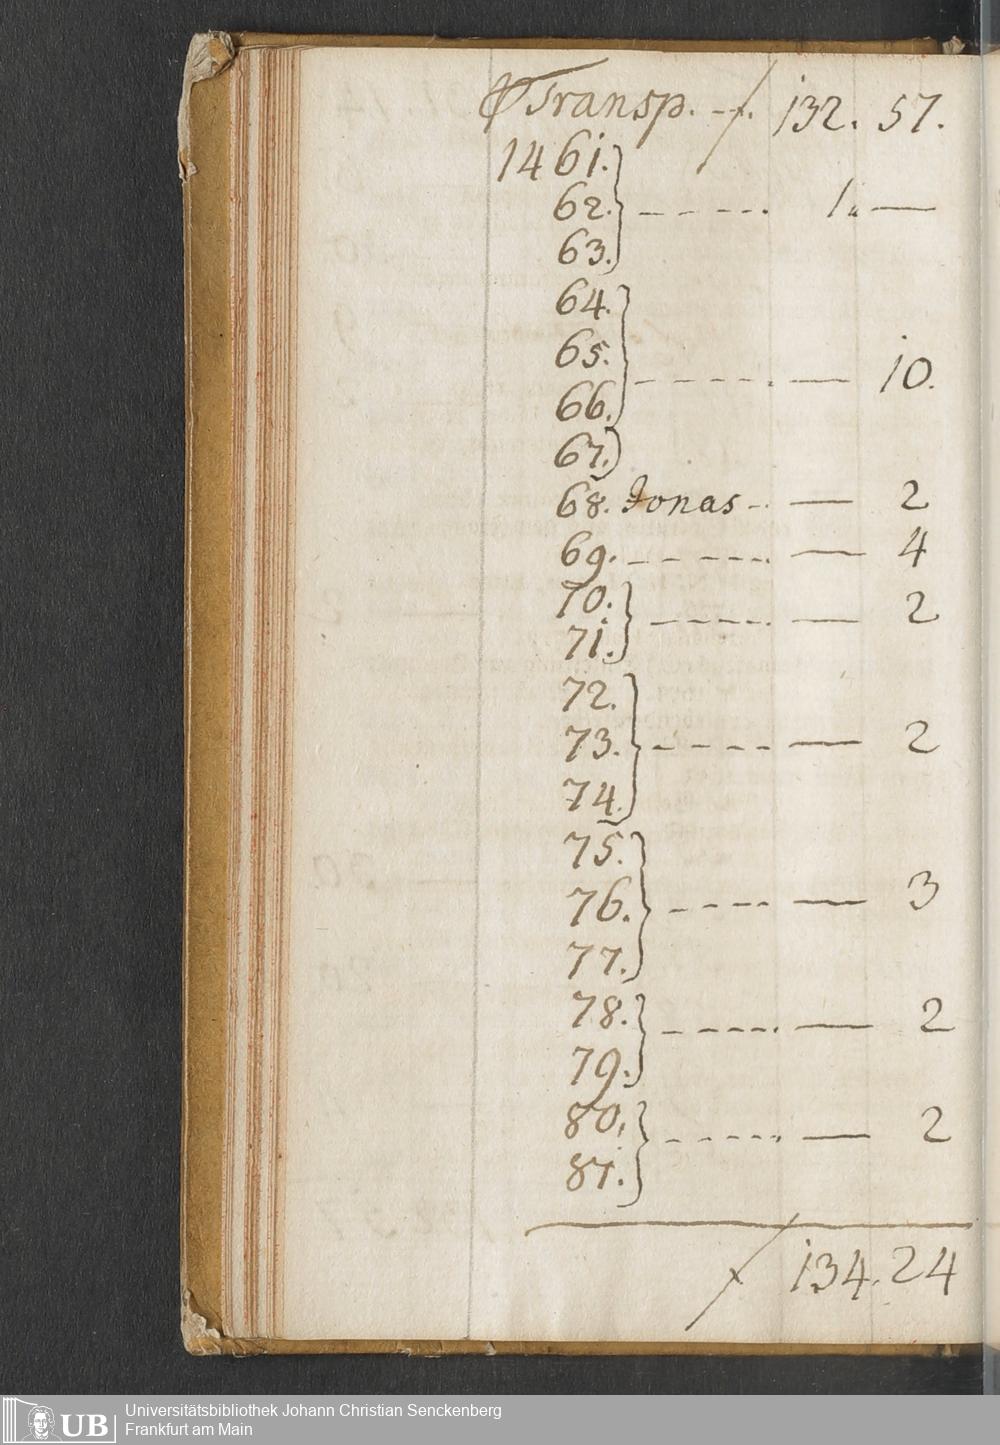 Transp. - f. 132. 57.
1461.
62. - - - - - 1. —
63.
64.
65.
66. - - - - - — 10.
67.
68. Jonas - - — 2
69. - - - - - — 4
70. - - - - - — 2
71.
72.
73. - - - - - — 2
74.
75.
76. - - - - — 3
77.
78. - - - - - — 2
79.
80. - - - - - — 2
81.
f 134. 24
UB Universitätsbibliothek Johann Christian Senckenberg
Frankfurt am Main